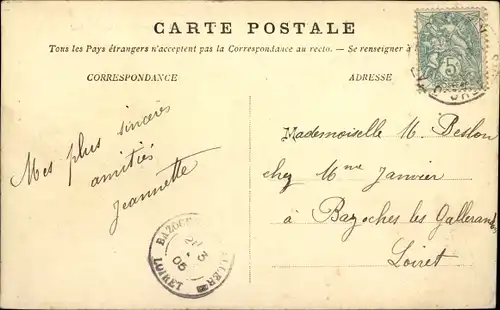 CARTE POSTALE
Tous les Pays étrangers n'acceptent pas la Correspondance au recto. — Se renseigner à
CORRESPONDANCE
ADRESSE
5
Mes plus sincères
amitiés
Jeannette
Mademoiselle M. Beslon
chez Mme Janvier
à Bazoches les Gallerandes
Loiret
BAZOC
3
05
LOIRET